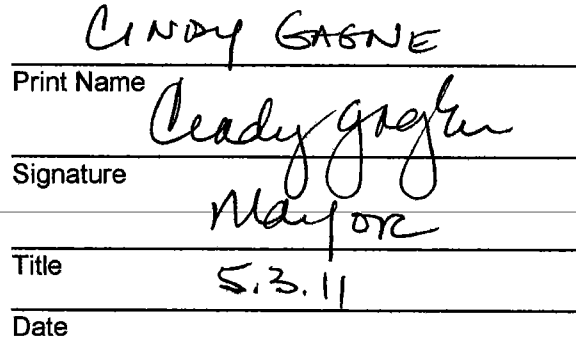 CINDY GAGNE
Print Name
Cindy Gagne
Signature
Mayor
Title
5.3.11
Date